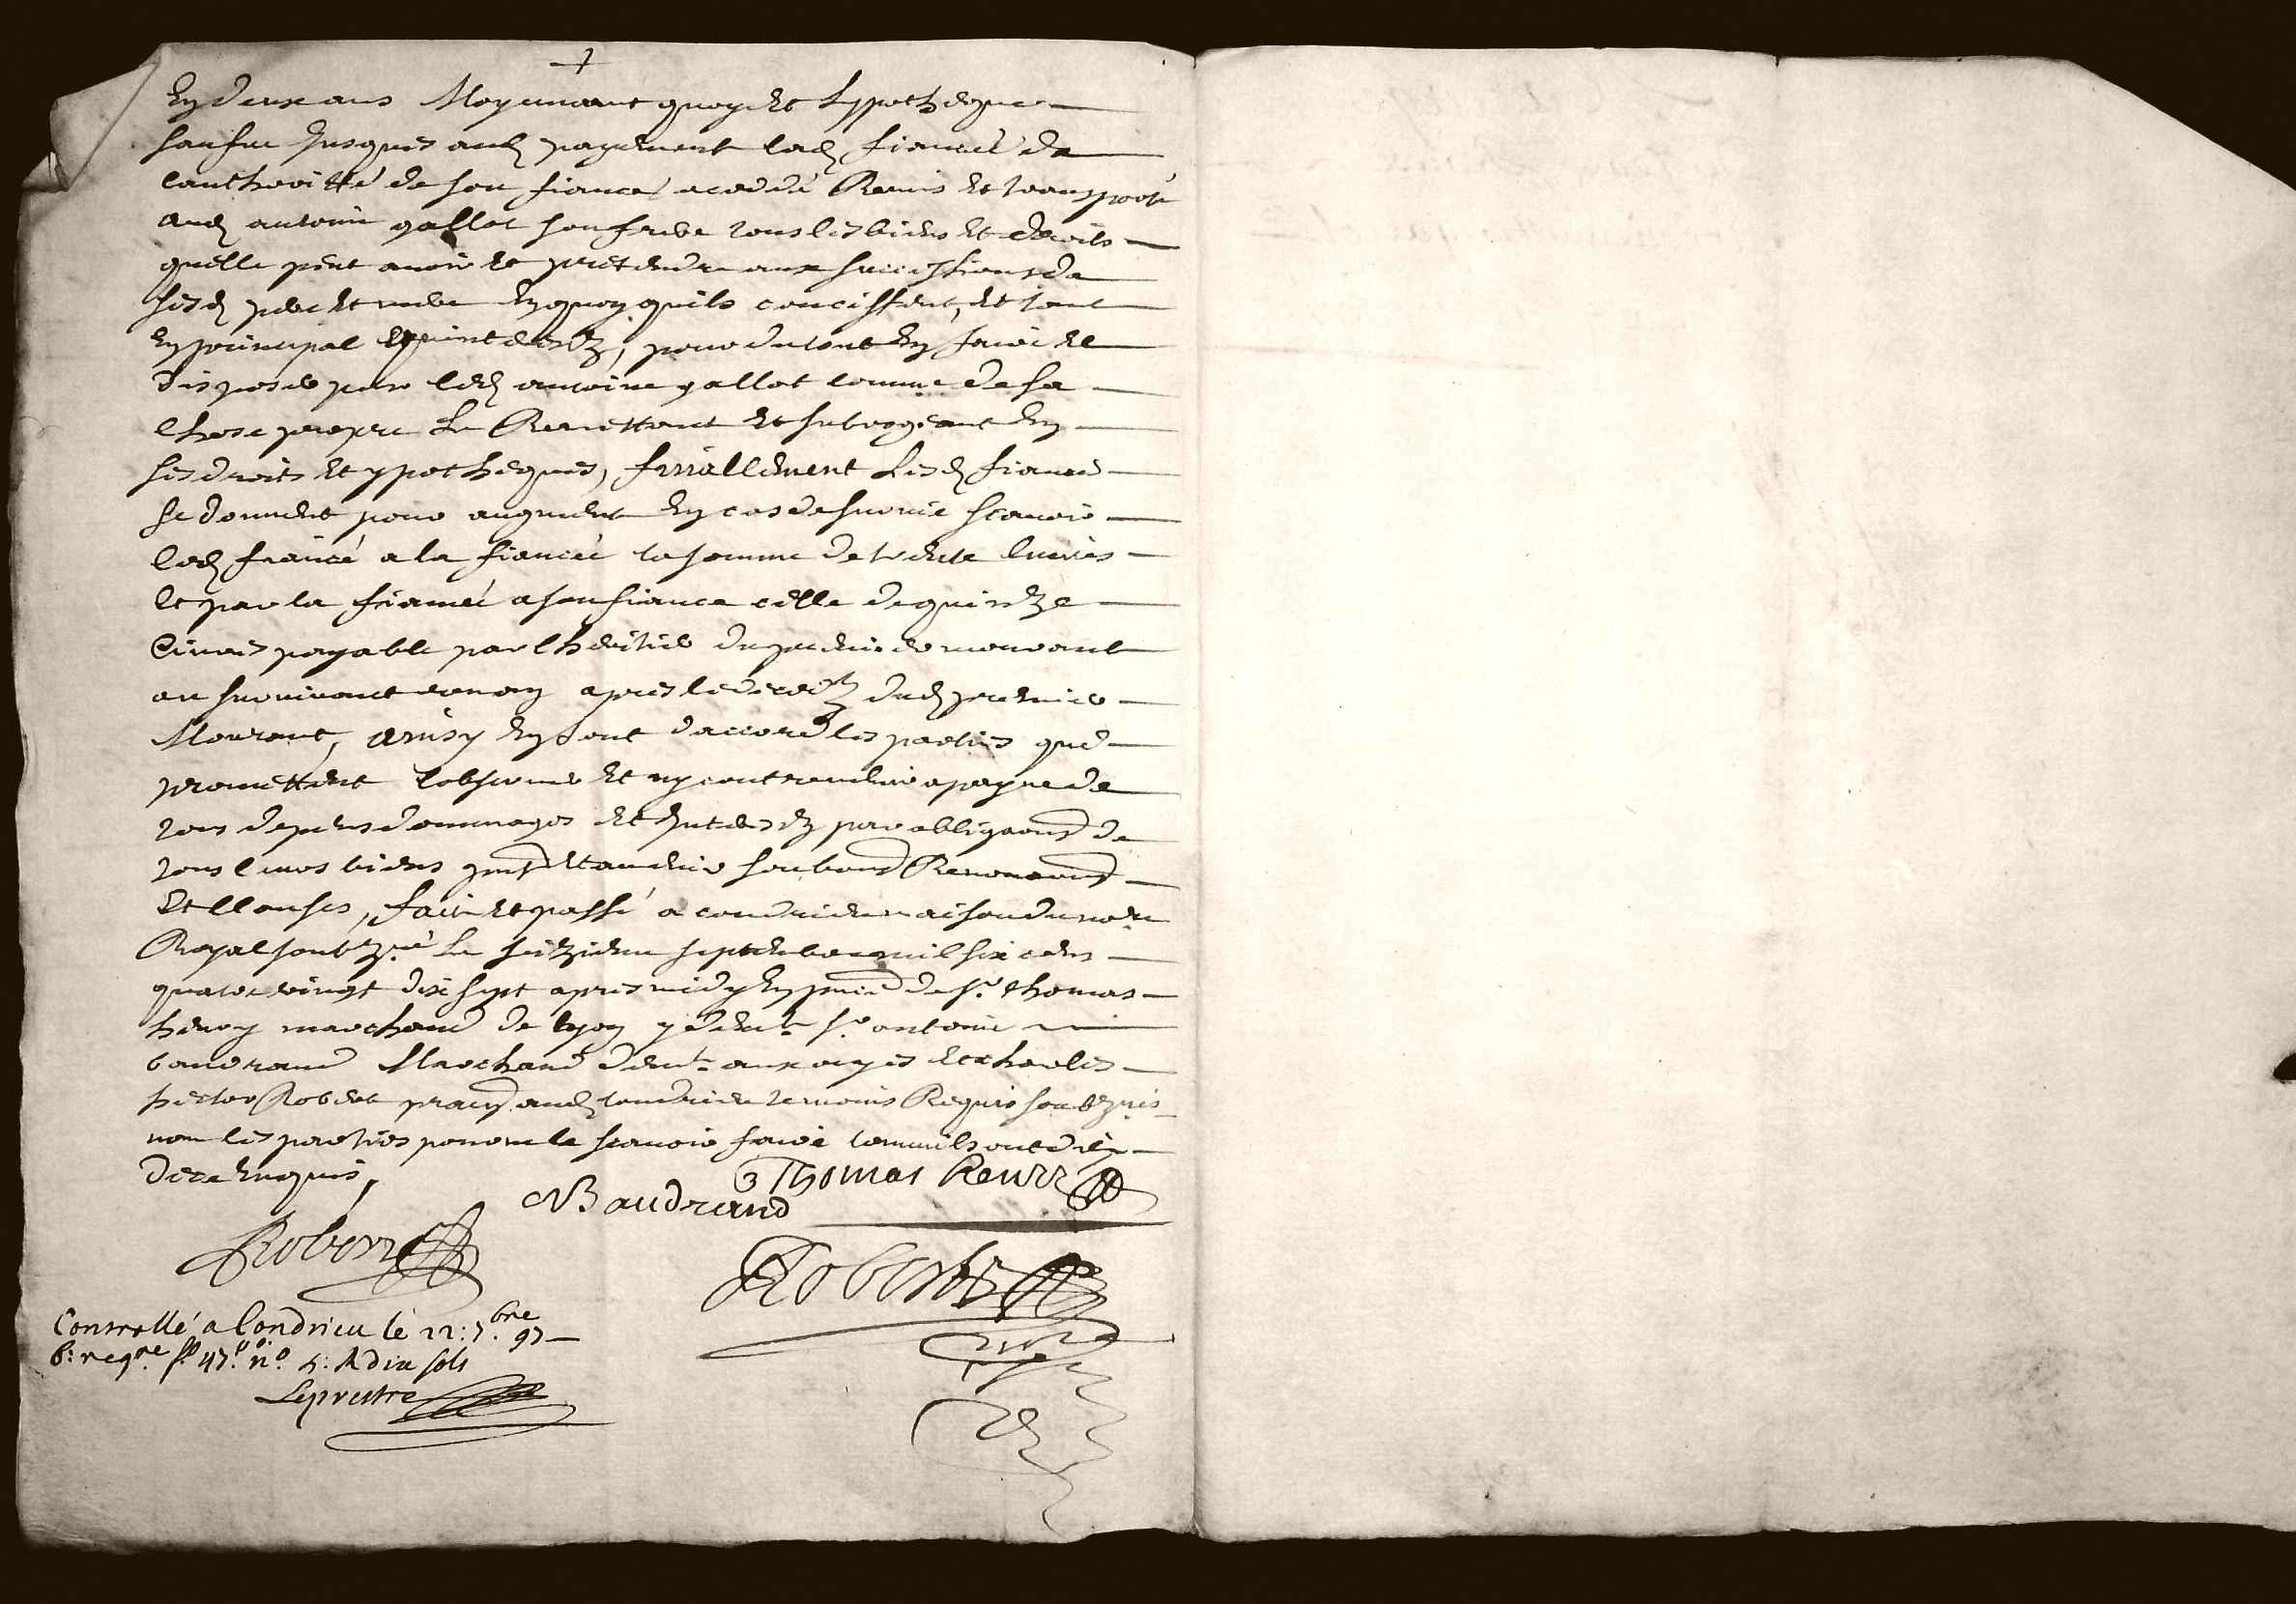 En deux ans Moyennant quoy et hypotheque
saufve Jusques aud payement lad fiancée de
lauthoritté de son fiancé a ceddé Remis et transporté
aud antoine gallot son frere tous les biens et droits
quelle peut avoir et pretendre aux successions de
sesd pere et mere En quoy quils concistent, et tant
En principal quinterestz, pour du tout En faire et
disposer par led antoine gallot comme de sa
chose propre Le Remettant et subrogeant En
ses droits et ypotheques, finallement Lesd fiances
se donnent pour augment En cas de survie scavoir
led fiancé a la fiancée la somme de trente livres
Et par la fiancée a son fiance celle de quinze
livres payable par lheritier du premier mourant
au survivant un an apres le decedz dud premier
Mourant, ainsy En sont daccord les parties que
promettent lobserver et ny contrevenir a peyne de
tous depens dommages et Interestz par obligaons de
tous leurs biens pnts et advenir soubons Renonaons
Et clauses, fait et passé a condrieu maison du nore
Royal soubzné Le seizieme septembre mil six cens
quatre vingt dix sept apres midy En pnce de sr thomas
henry marchand de lyon y demt sr antoine
baudrand Marchand demt aux ayes et charles
hector Robert pratn aud condrieu temoins Requis soubznes
non les parties pour ne le scavoir faire comme ils ont dit
de ce Enquis,
Thomas Henry
Baudrand
Robert
Robert
Controllé a Condrieu le 22: 7.bre 97
6: regre fo 47. no. 5: R dix sols
Leprestre